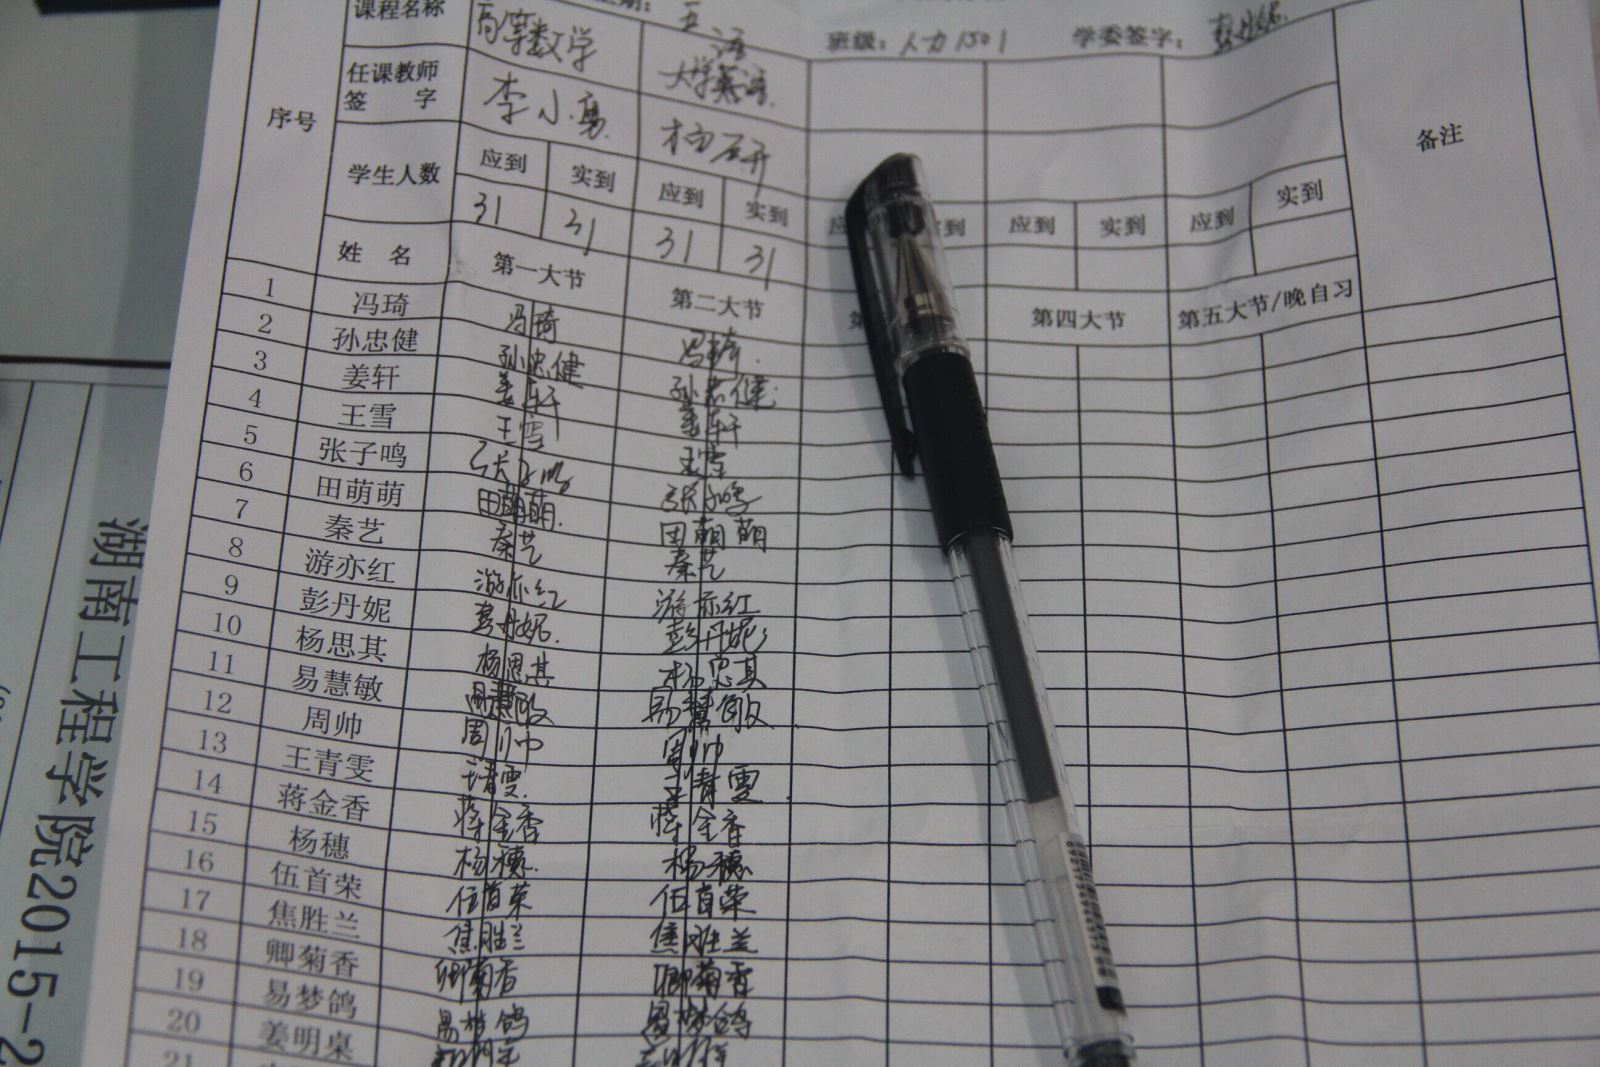 课程名称 高等数学 大学英语
班级：人力1501 学委签字：彭丹妮
序号 任课教师签字 李小勇 备注
学生人数 应到 实到 应到 实到 应到 实到 应到 实到
31 31 31 31
姓名 第一大节 第二大节 第四大节 第五大节/晚自习
1 冯琦 冯琦 冯琦
2 孙忠健 孙忠健 孙忠健
3 姜轩 姜轩 姜轩
4 王雪 王雪 王雪
5 张子鸣 张子鸣 张子鸣
6 田萌萌 田萌萌 田萌萌
7 秦艺 秦艺 秦艺
8 游亦红 游亦红 游亦红
9 彭丹妮 彭丹妮 彭丹妮
10 杨思其 杨思其 杨思其
11 易慧敏 易慧敏 易慧敏
12 周帅 周帅 周帅
13 王青雯 王青雯 王青雯
14 蒋金香 蒋金香 蒋金香
15 杨穗 杨穗 杨穗
16 伍首荣 伍首荣 伍首荣
17 焦胜兰 焦胜兰 焦胜兰
18 卿菊香 卿菊香 卿菊香
19 易梦鸽 易梦鸽 易梦鸽
20 姜明桌
21
湖南工程学院2015-2